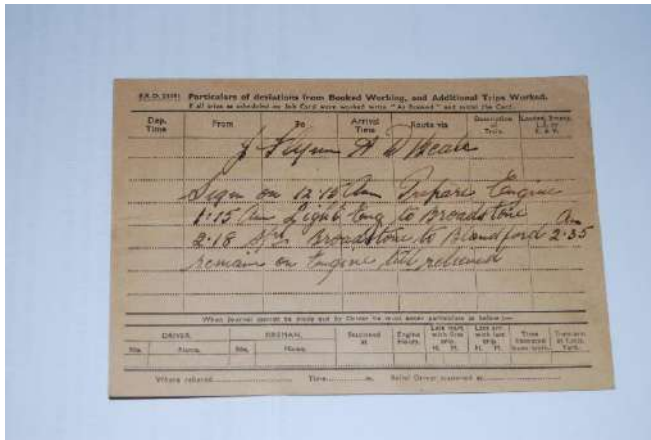 Particulars of deviations from Booked Working, and Additional Trips Worked.
If all trips as scheduled on Job Card were worked write "As Booked" and initial the Card.
Dep. Time From To Arrival Time Route via Description of Train.
J Flynn A D Beale
Sign on 12.15 Am Prepare Engine
1.15 Am Light Eng to Broadstone
2.18 Broadstone to Blandford 2.35 Am
remain on Engine till relieved
When Journal cannot be made out by Driver he must enter particulars as below:—
DRIVER. FIREMAN. Stationed at Engine Hours.
No. Name. No. Name.
Where relieved Time m. Relief Driver stationed at